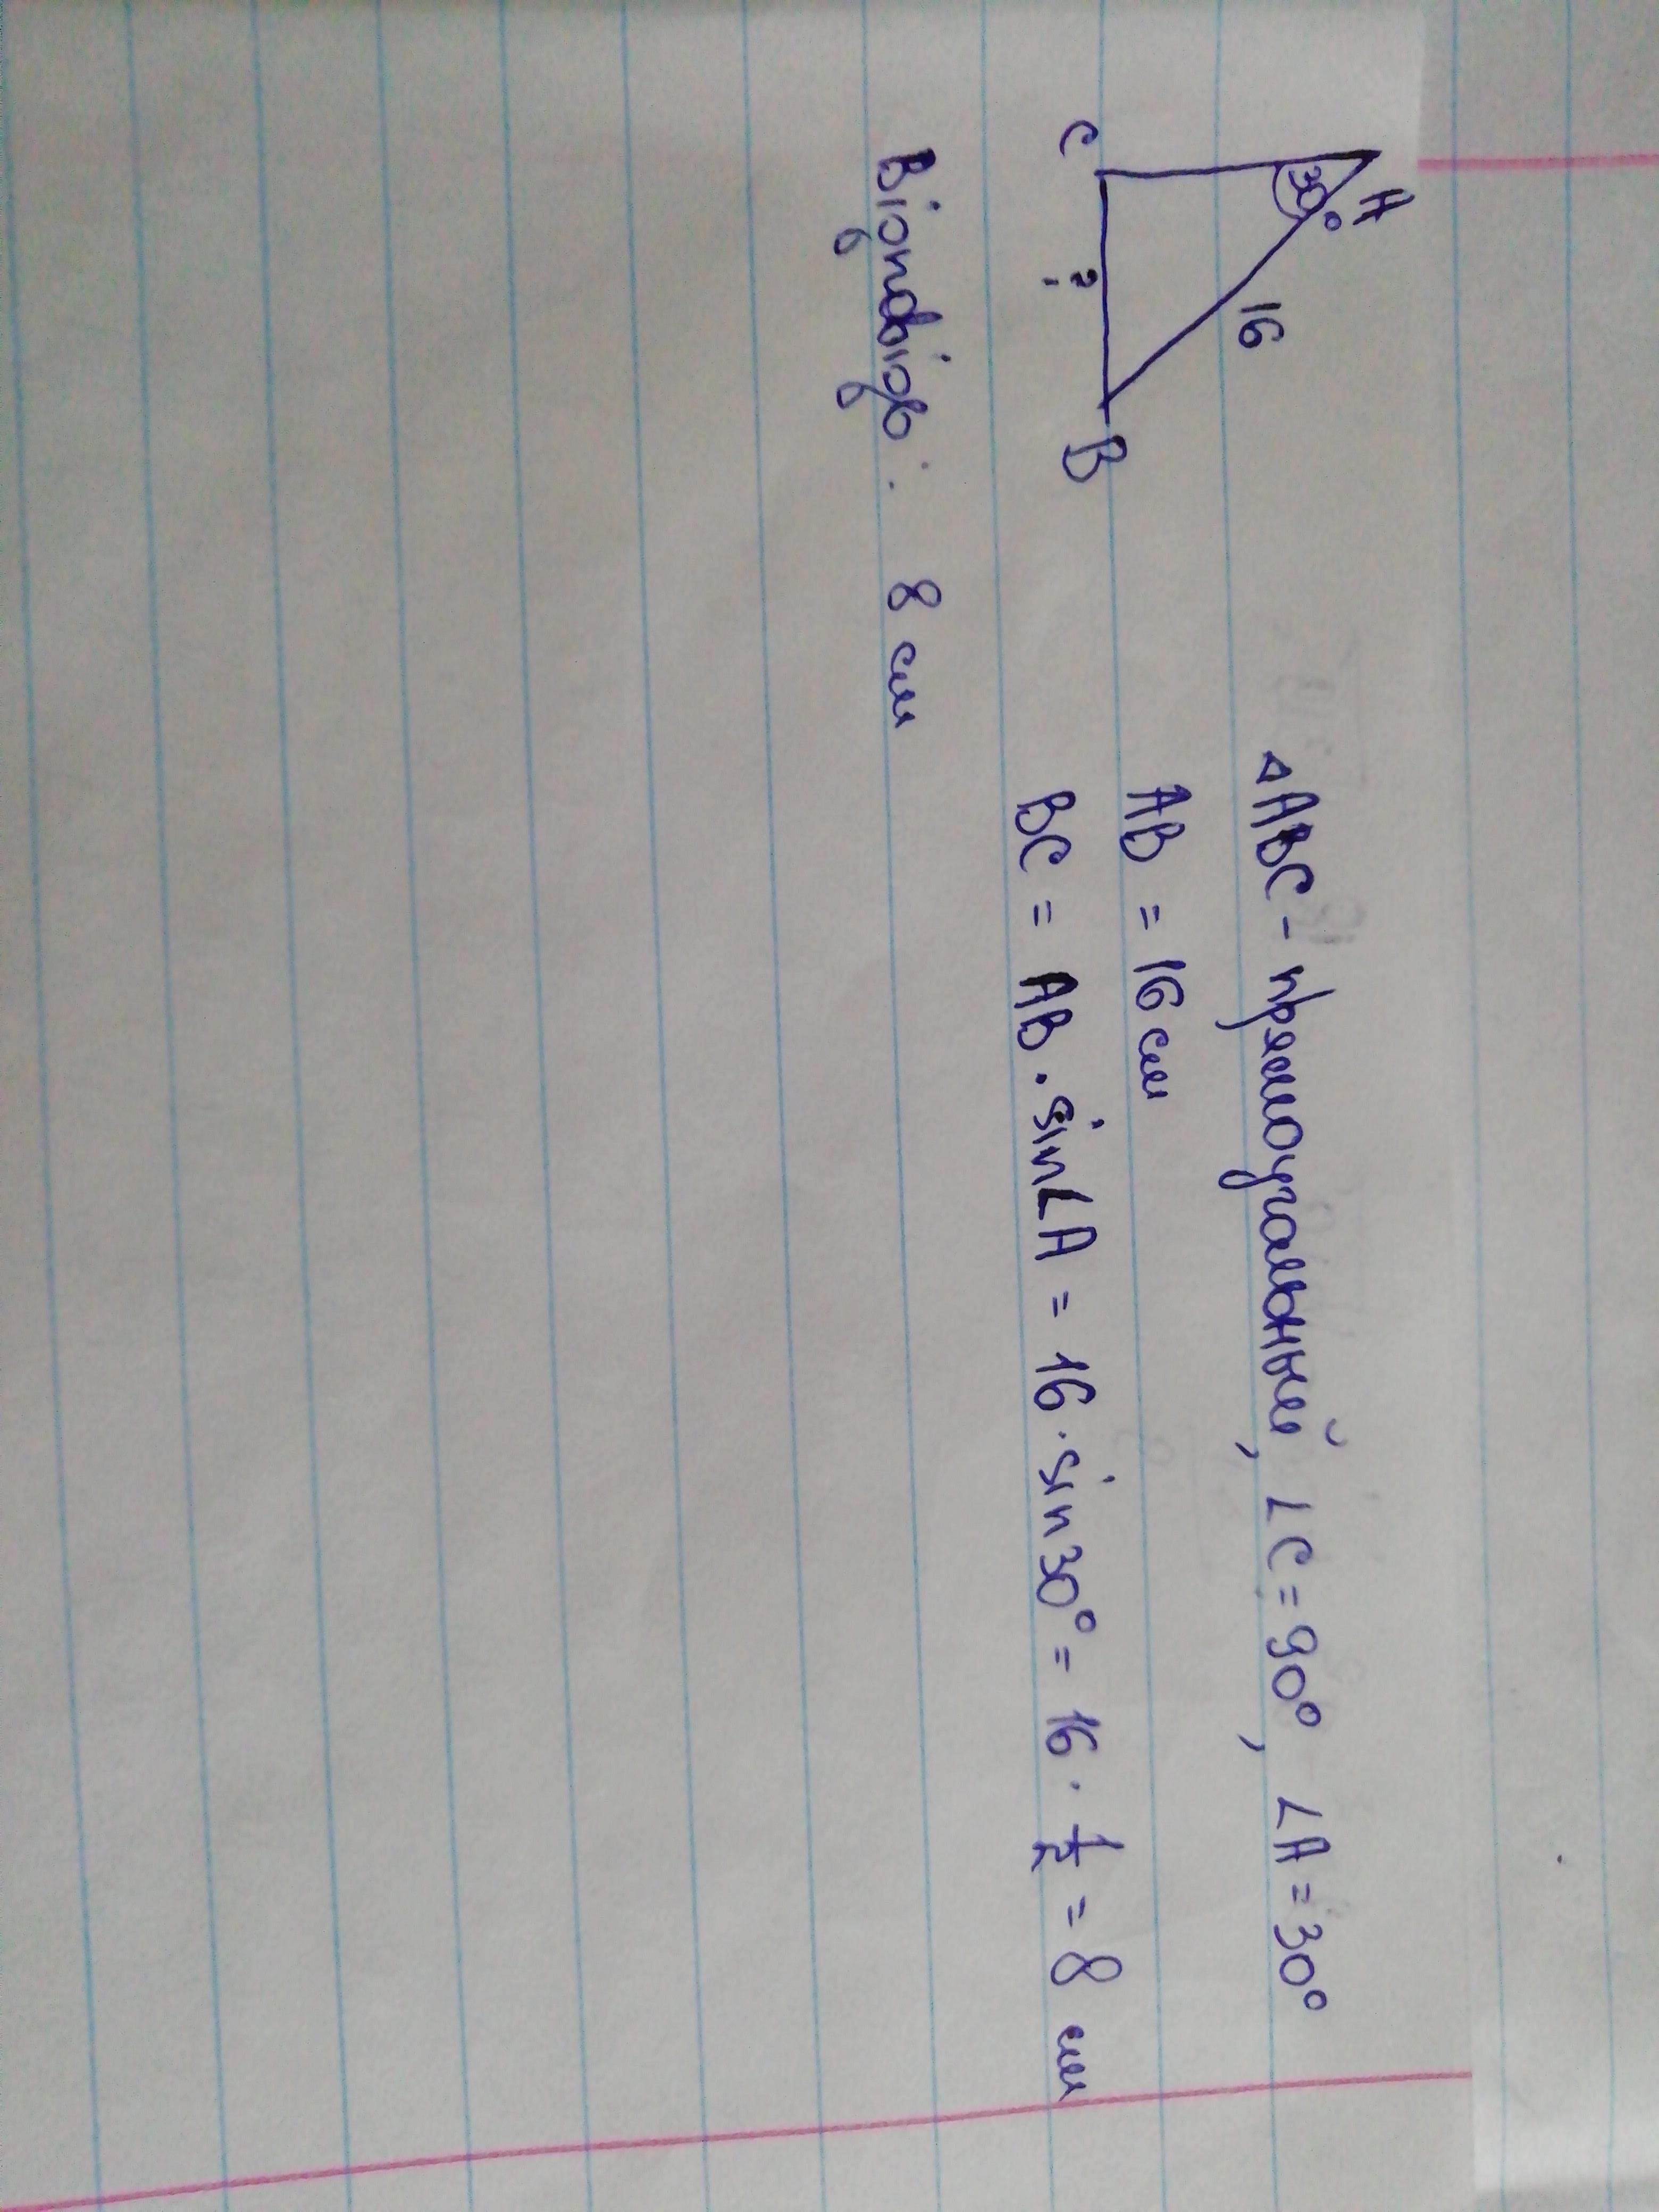 A
30°
16
C
?
B
△ABC - прямоугальный, ∠C = 90°, ∠A = 30°
AB = 16 см
BC = AB · sin∠A = 16 · sin30° = 16 · 1/2 = 8 см
Відповідь: 8 см